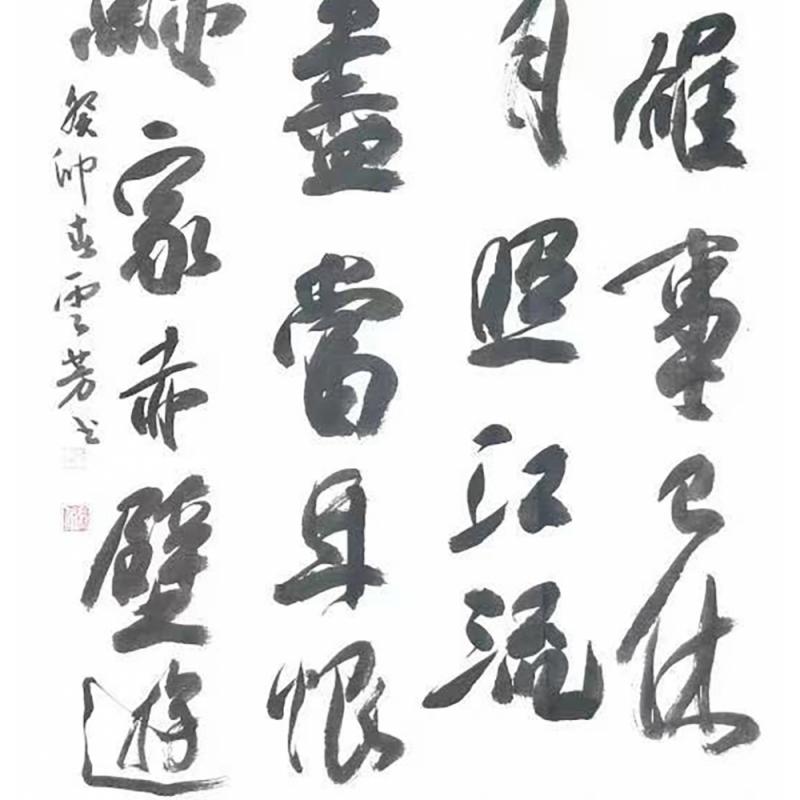 事已休
月照江流
盡當日恨
家赤壁遊
癸卯春雲芳书